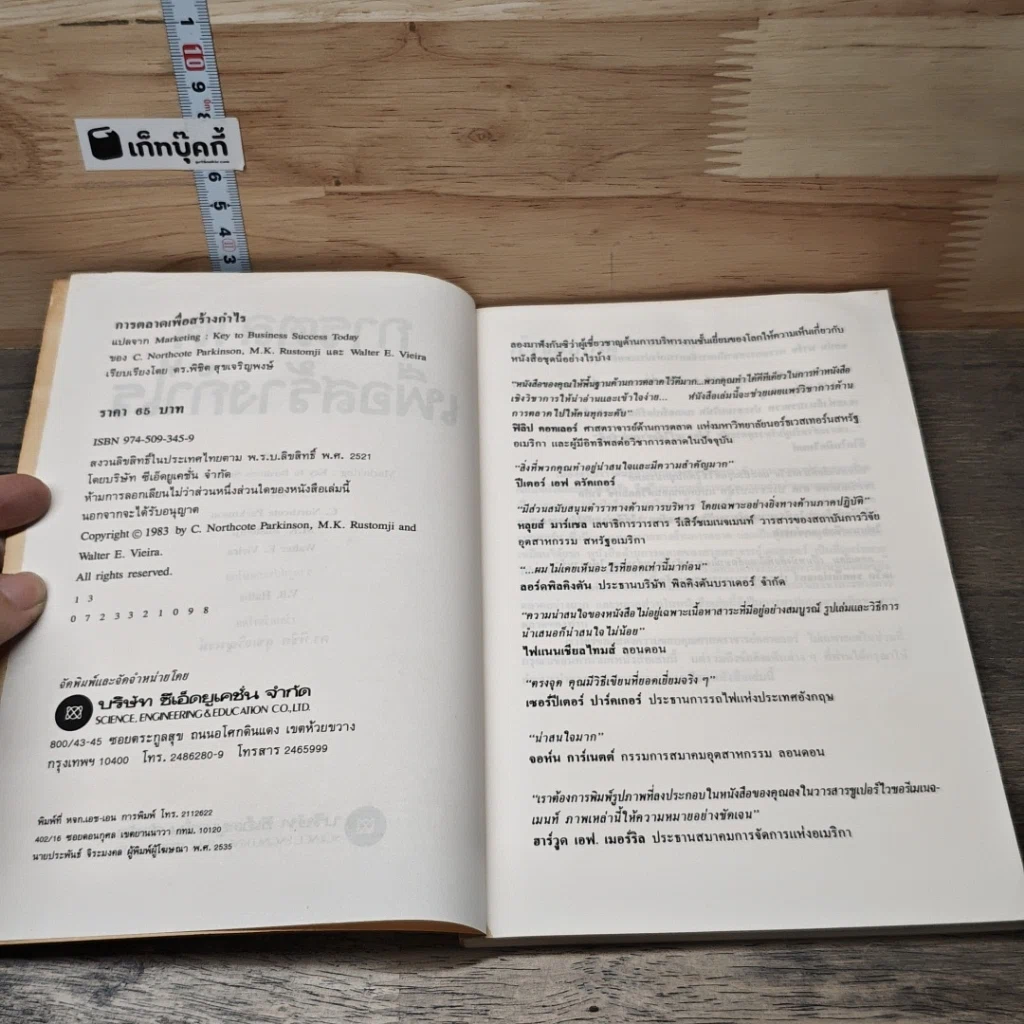 1
10
9
เก็ทบุ๊คกี้
6
5
4
3
การตลาดเพื่อสร้างกำไร
แปลจาก Marketing : Key to Business Success Today
ของ C. Northcote Parkinson, M.K. Rustomji และ Walter E. Vieira
เรียบเรียงโดย ดร.พิชิต สุขเจริญพงษ์
ราคา 65 บาท
ISBN 974-509-345-9
สงวนลิขสิทธิ์ในประเทศไทยตาม พ.ร.บ.ลิขสิทธิ์ พ.ศ. 2521
โดยบริษัท ซีเอ็ดยูเคชั่น จำกัด
ห้ามการลอกเลียนไม่ว่าส่วนหนึ่งส่วนใดของหนังสือเล่มนี้
นอกจากจะได้รับอนุญาต
Copyright © 1983 by C. Northcote Parkinson, M.K. Rustomji and
Walter E. Vieira.
All rights reserved.
1 3
0 7 2 3 3 2 1 0 9 8
จัดพิมพ์และจัดจำหน่ายโดย
บริษัท ซีเอ็ดยูเคชั่น จำกัด
SCIENCE, ENGINEERING & EDUCATION CO.,LTD.
800/43-45 ซอยตระกูลสุข ถนนอโศกดินแดง เขตห้วยขวาง
กรุงเทพฯ 10400 โทร. 2486280-9 โทรสาร 2465999
พิมพ์ที่ หจก.เอช-เอน การพิมพ์ โทร. 2112622
402/16 ซอยดอนกุศล เขตยานนาวา กทม. 10120
นายประพันธ์ จิระมงคล ผู้พิมพ์ผู้โฆษณา พ.ศ. 2535
ลองมาฟังกันซิว่าผู้เชี่ยวชาญด้านการบริหารงานชั้นเยี่ยมของโลกให้ความเห็นเกี่ยวกับ
หนังสือชุดนี้อย่างไรบ้าง
"หนังสือของคุณให้พื้นฐานด้านการตลาดไว้ดีมาก...พวกคุณทำได้ดีทีเดียวในการทำหนังสือ
เชิงวิชาการให้น่าอ่านและเข้าใจง่าย... หนังสือเล่มนี้จะช่วยเผยแพร่วิชาการด้าน
การตลาดไปให้คนทุกระดับ"
ฟิลิป คอทเลอร์ ศาสตราจารย์ด้านการตลาด แห่งมหาวิทยาลัยนอร์ธเวสเทอร์นสหรัฐ
อเมริกา และผู้มีอิทธิพลต่อวิชาการตลาดในปัจจุบัน
"สิ่งที่พวกคุณทำอยู่น่าสนใจและมีความสำคัญมาก"
ปีเตอร์ เอฟ ดรัคเกอร์
"มีส่วนสนับสนุนตำราทางด้านการบริหาร โดยเฉพาะอย่างยิ่งทางด้านภาคปฏิบัติ"
หลุยส์ มาร์เซล เลขาธิการวารสาร รีเสิร์ชเมเนจเมนท์ วารสารของสถาบันการวิจัย
อุตสาหกรรม สหรัฐอเมริกา
"...ผมไม่เคยเห็นอะไรที่ยอดเท่านี้มาก่อน"
ลอร์ดพิลคิงตัน ประธานบริษัท พิลคิงตันบราเดอร์ จำกัด
"ความน่าสนใจของหนังสือไม่อยู่เฉพาะเนื้อหาสาระที่มีอยู่อย่างสมบูรณ์ รูปเล่มและวิธีการ
นำเสนอก็น่าสนใจไม่น้อย"
ไฟแนนเชียลไทมส์ ลอนดอน
"ตรงจุด คุณมีวิธีเขียนที่ยอดเยี่ยมจริง ๆ"
เซอร์ปีเตอร์ ปาร์คเกอร์ ประธานการรถไฟแห่งประเทศอังกฤษ
"น่าสนใจมาก"
จอห์น การ์เนตต์ กรรมการสมาคมอุตสาหกรรม ลอนดอน
"เราต้องการพิมพ์รูปภาพที่ลงประกอบในหนังสือของคุณลงในวารสารซูเปอร์ไวซอรีเมเนจ-
เมนท์ ภาพเหล่านี้ให้ความหมายอย่างชัดเจน"
ฮาร์วูด เอฟ. เมอร์ริล ประธานสมาคมการจัดการแห่งอเมริกา